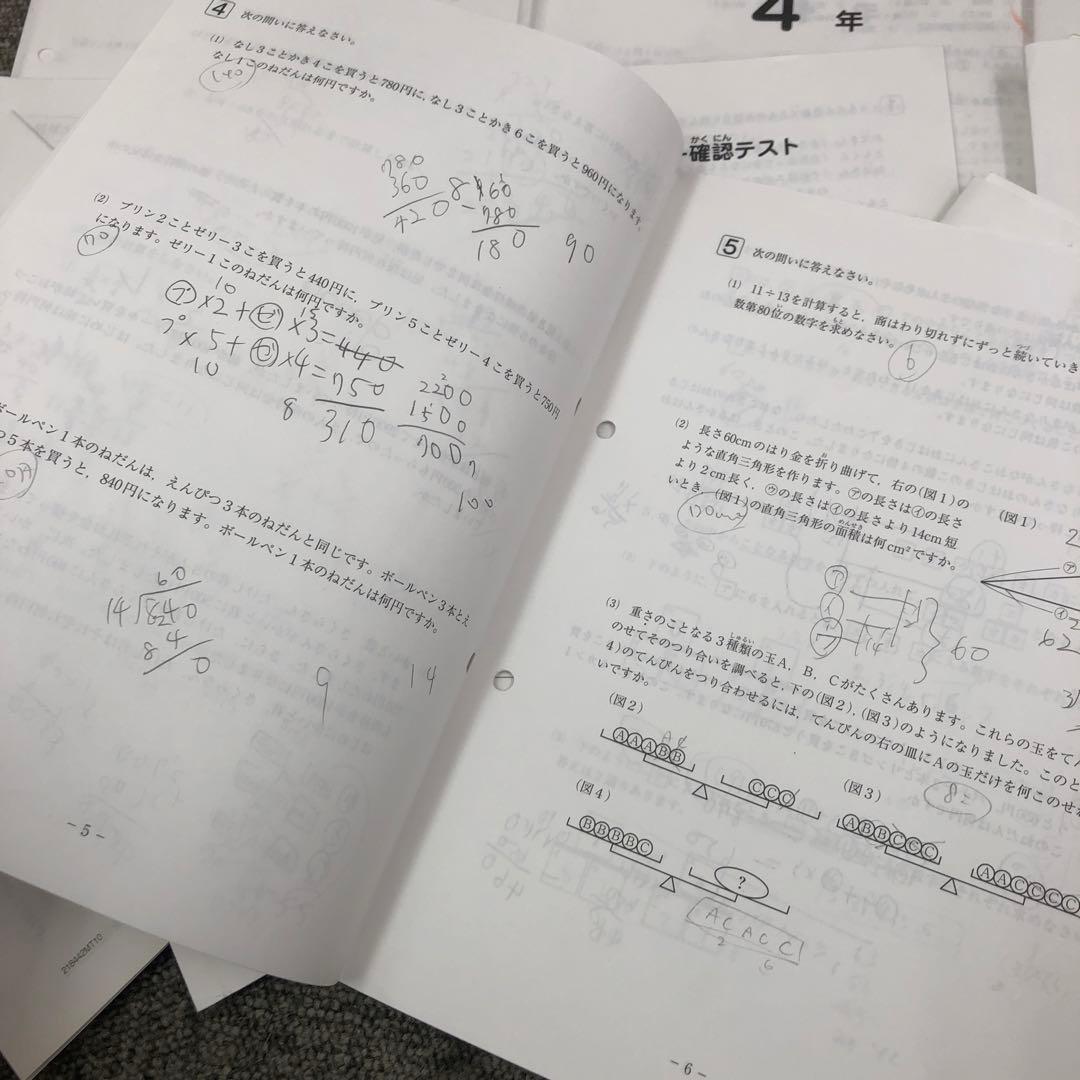 4 年
確認テスト
かくにん
4 次の問いに答えなさい。
(1) なし3ことかき4こを買うと780円に,なし3ことかき6こを買うと960円になります。
なし1このねだんは何円ですか。
140
780
360
420
960
-780
180
90
(2) プリン2ことゼリー3こを買うと440円に,プリン5ことゼリー4こを買うと750円
になります。ゼリー1このねだんは何円ですか。
10
プ×2+ゼ×3=440
15
プ×5+ゼ×4=750
10
8
310
2200
1500
700
100
ボールペン1本のねだんは,えんぴつ3本のねだんと同じです。ボールペン3本とえ
つ5本を買うと,840円になります。ボールペン1本のねだんは何円ですか。
60
14)840
84
0
9
14
-5-
218442MT10
5 次の問いに答えなさい。
(1) 11÷13を計算すると,商はわり切れずにずっと続いていき
数第80位の数字を求めなさい。
6
(2) 長さ60cmのはり金を折り曲げて,右の(図1)の
ような直角三角形を作ります。㋐の長さは㋑の長さ
より2cm長く,㋒の長さは㋑の長さより14cm短
いとき,(図1)の直角三角形の面積は何cm²ですか。
(図1)
㋐
㋑
120cm²
ア
イ
ウ
14
60
62
(3) 重さのことなる3種類の玉A,B,Cがたくさんあります。これらの玉をてん
のせてそのつり合いを調べると,下の(図2),(図3)のようになりました。このと
4)のてんびんをつり合わせるには,てんびんの右の皿にAの玉だけを何このせれ
いですか。
8こ
(図2)
AAABB
CCC
(図3)
ABBCCC
AACCCC
(図4)
BBBBC
?
ACACC
2
6
-6-